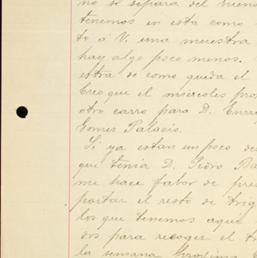 no se separa del bueno
tenemos en esta como
to á V. una muestra
hay algo poco menos.
otra de como queda el
Creo que el miercoles pro
otro carro para D. Enri
Gomez Palacio.
Si ya estan un poco de
que tenia D. Pedro Pa
me hace fabor de pre
portar el resto de trig
los que tenemos aqui
dos para recoger el t
la semana proxima